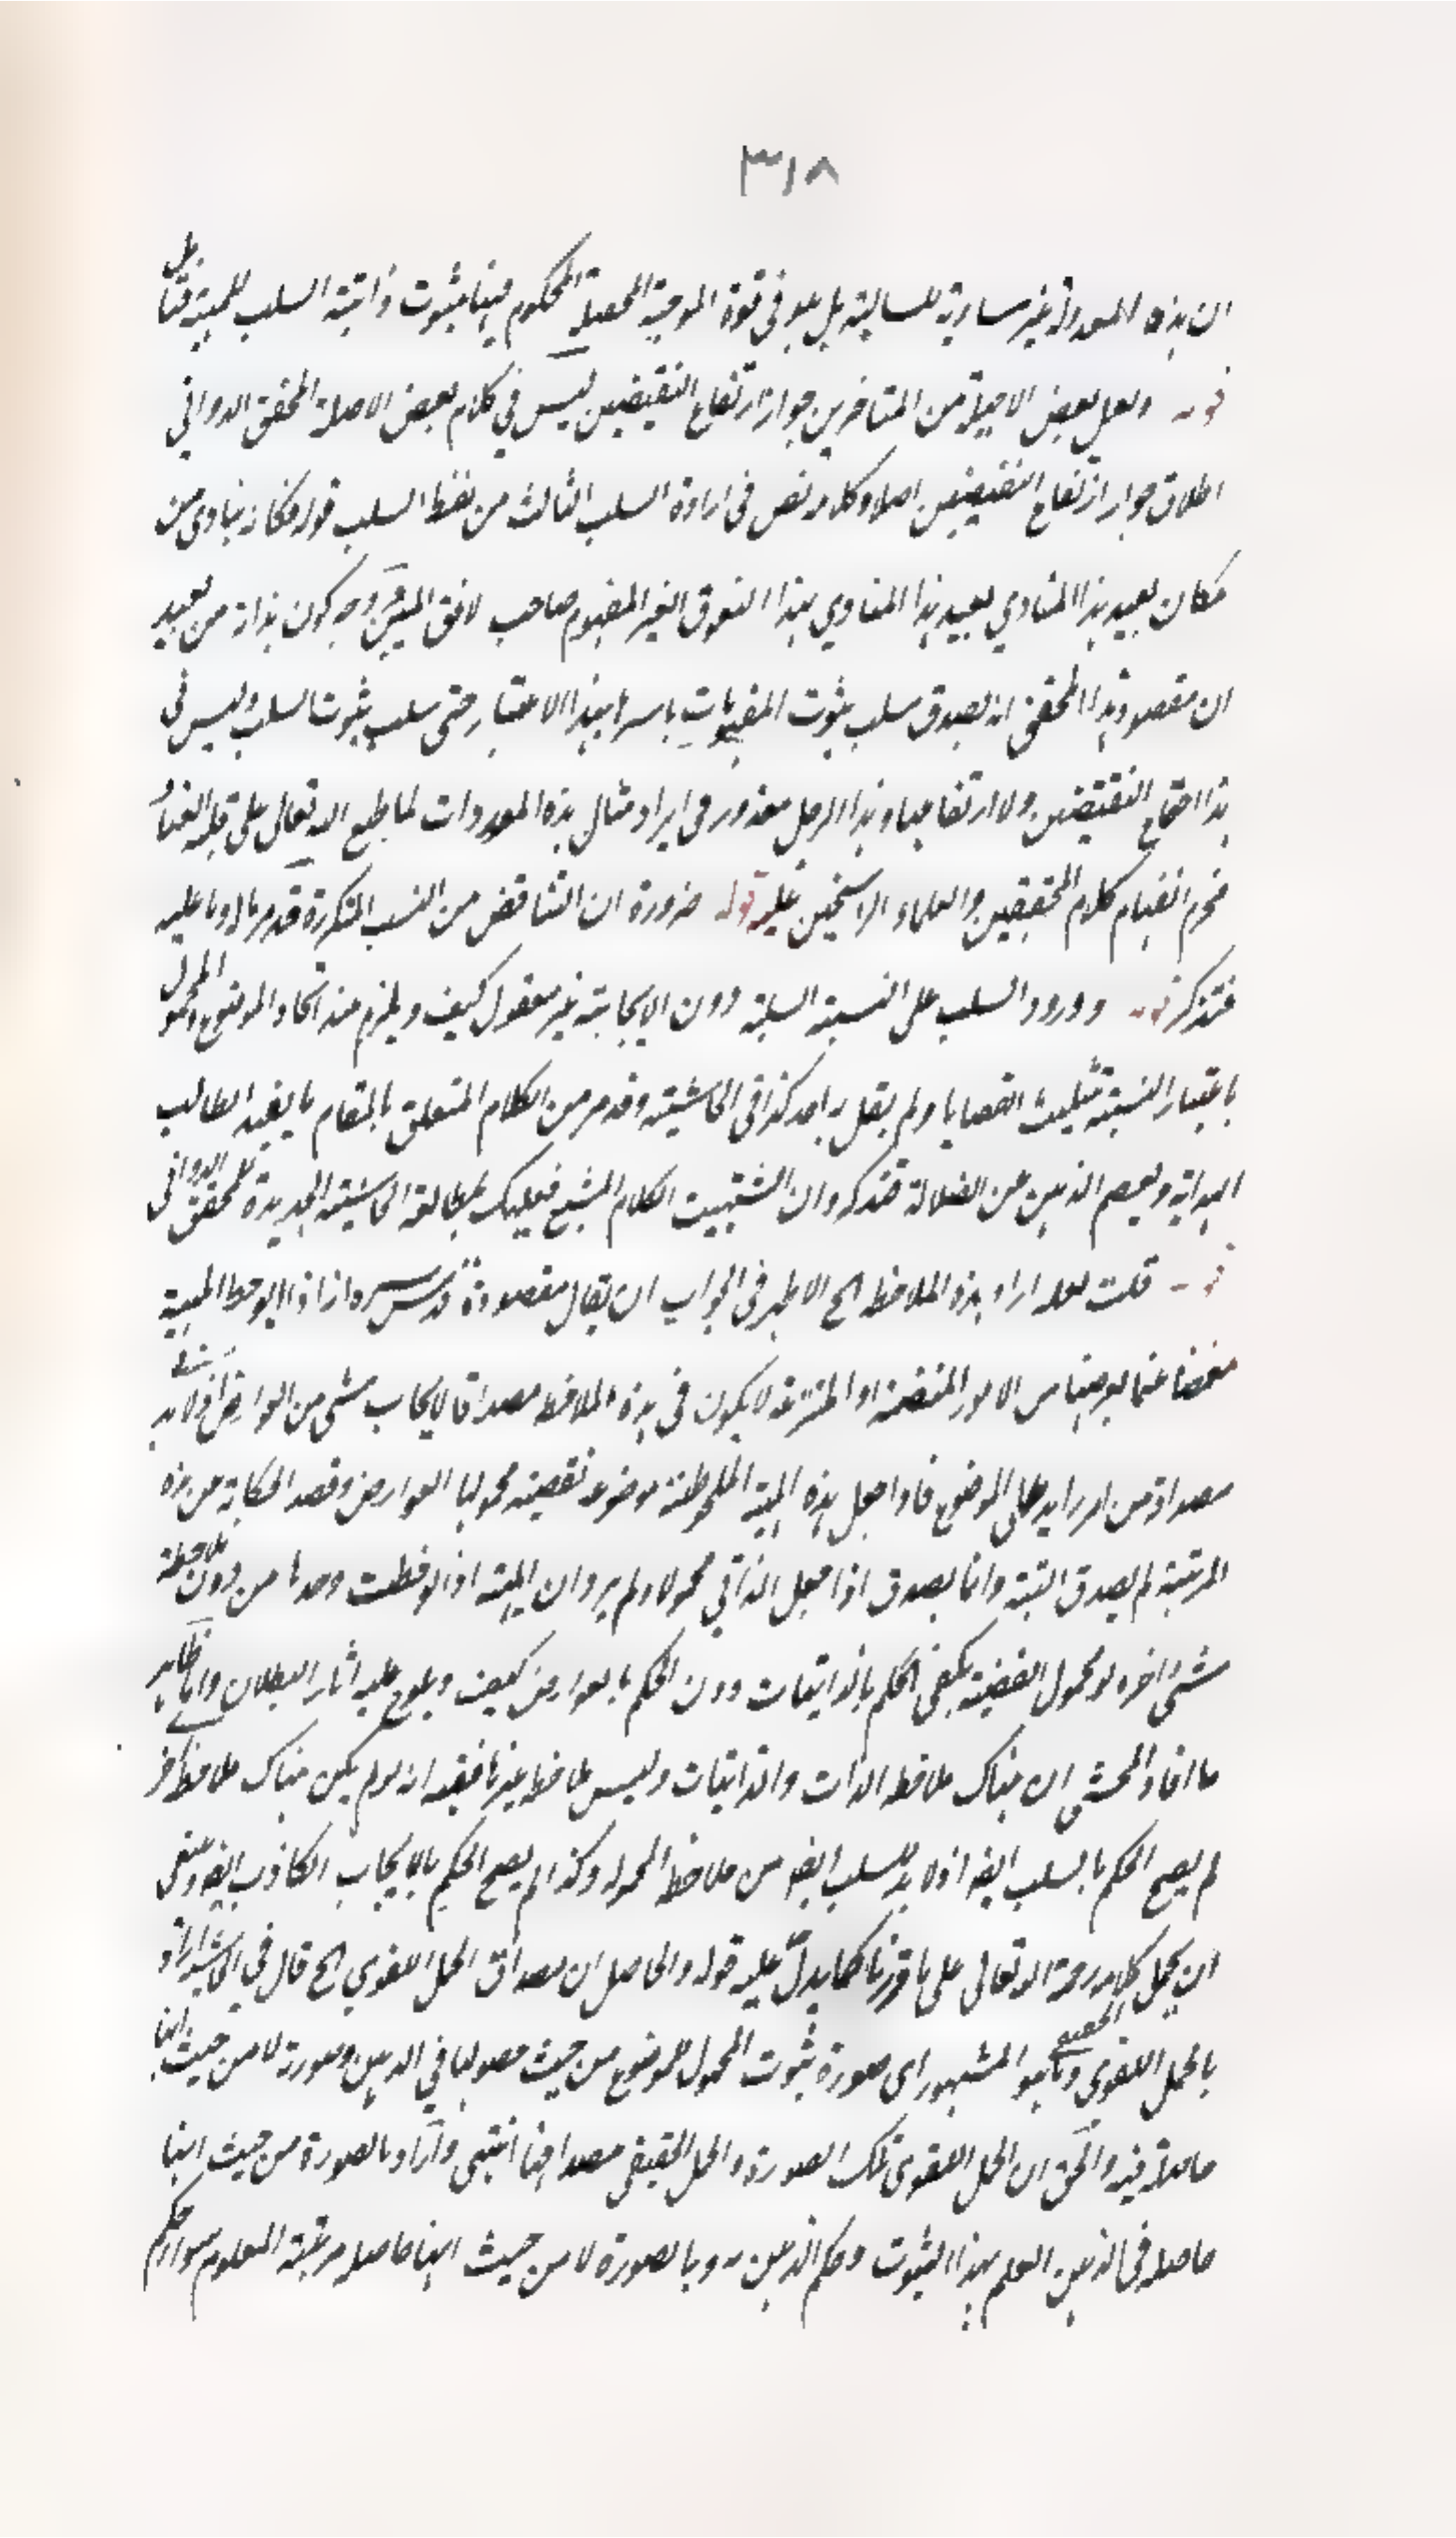 ٣١٨
ان هذه المعدولة غير مساوية للسالبة بل هو في قوة الموجبة المحصلة المحكوم فيها بثبوت ذاتية السلب للمهية فتأمل
قوله ولعل بعض الاجلة من المتاخرين جواز ارتفاع النقيضين ليس في كلام بعض الاجلة المحقق الدواني
اطلاق جواز ارتفاع النقيضين اصلا وكلامه نص في ارادة السلب الثالث من لفظ السلب قوله فكانه ينادي من
مكان بعيد هذا المنادي بعيد هذا المنادي بهذا الغير المفهوم صاحب الافق المبين من بعيد
ان مقصود هذا المحقق انه يصدق سلب ثبوت المفهومات باسرها بهذا الاعتبار حتى سلب ثبوت السلب وليس في
هذا اجتماع النقيضين ولا ارتفاعهما وهذا الرجل معذور في ايراد مثال هذه المعدودات لما طبع الله تعالى على قلبه
فحرم انفهام كلام المحققين والعلماء الراسخين عليه قوله ضرورة ان التناقض من النسب المتكررة قد مر ما له وما عليه
فتذكر قوله وورود السلب على النسبة السلبية دون الايجابية غير معقول كيف ويلزم منه اتحاد الموضوع والمحمول
باعتبار النسبة تثليث القضايا ولم يقل به احد كذا في الحاشية وقد مر من الكلام المتعلق بالمقام ما يفيد الطالب
الهداية ويعصم الذهن عن الضلالة فتذكره وان اشتهيت الكلام المشبع فعليك بمطالعة الحاشية الجديدة للمحقق الدواني
قوله قلت لعله اراد بهذه الملاحظة الخ الاظهر في الجواب ان يقال مقصوده قدس سره انه اذا لوحظ المهية
مغمضا عما يعرضها من الامور المنضمة او المنتزعة لا يكون في هذه الملاحظة مصداقا لايجاب شيء من العوارض اذ لا بد
مصداقه من امر زايد على الموضوع فاذا جعل هذه المهية الملحوظة موضوعه لقضية محمولها العوارض وقصد الحكاية عن هذه
المرتبة لم يصدق البتة وانما يصدق اذا جعل الذاتي محمولا ولم يرد ان المهية اذا لوحظت وحدها من دون ملاحظة
شيء اخر هو محمول القضية يكفي الحكم بالذاتيات دون الحكم بالعوارض كيف ويلوح عليه اثار البطلان واما ظاهر
ما افاد المحشي ان هناك ملاحظة الذات والذاتيات وليس ملاحظة غيرها ففيه انه لو لم يكن هناك ملاحظة اخر
لم يصح الحكم بالسلب ايضا اذ لا بد للسلب ايضا من ملاحظة المحمول وكذا لم يصح الحكم بالايجاب الكاذب ايضا وينبغي
ان يحمل كلامه رحمه الله تعالى على ما قررنا كما يدل عليه قوله والحاصل ان مصداق الحمل اللغوي الخ قال في الحاشية اراد
بالحمل اللغوي والحقيقي ما هو المشهور اى صورة ثبوت المحمول للموضوع من حيث حصولها في الذهن وصورته لا من حيث انها
حاصلة فيه والحق ان الحمل اللغوي تلك الصورة والحمل الحقيقي مصداقها انتهى واراد بالصورة من حيث انها
حاصلة في الذهن العلم بهذا الثبوت وحكم الذهن به وبالصورة لا من حيث انها حاصلة مرتبة المعلوم سواء حكم